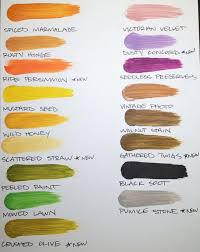 SPICED MARMALADE
RUSTY HINGE
RIPE PERSIMMON *NEW
MUSTARD SEED
WILD HONEY
SCATTERED STRAW *NEW
PEELED PAINT
MOWED LAWN
CRUSHED OLIVE *NEW
VICTORIAN VELVET
DUSTY CONCORD *NEW
SEEDLESS PRESERVES
VINTAGE PHOTO
WALNUT STAIN
GATHERED TWIGS *NEW
BLACK SOOT
PUMICE STONE *NEW